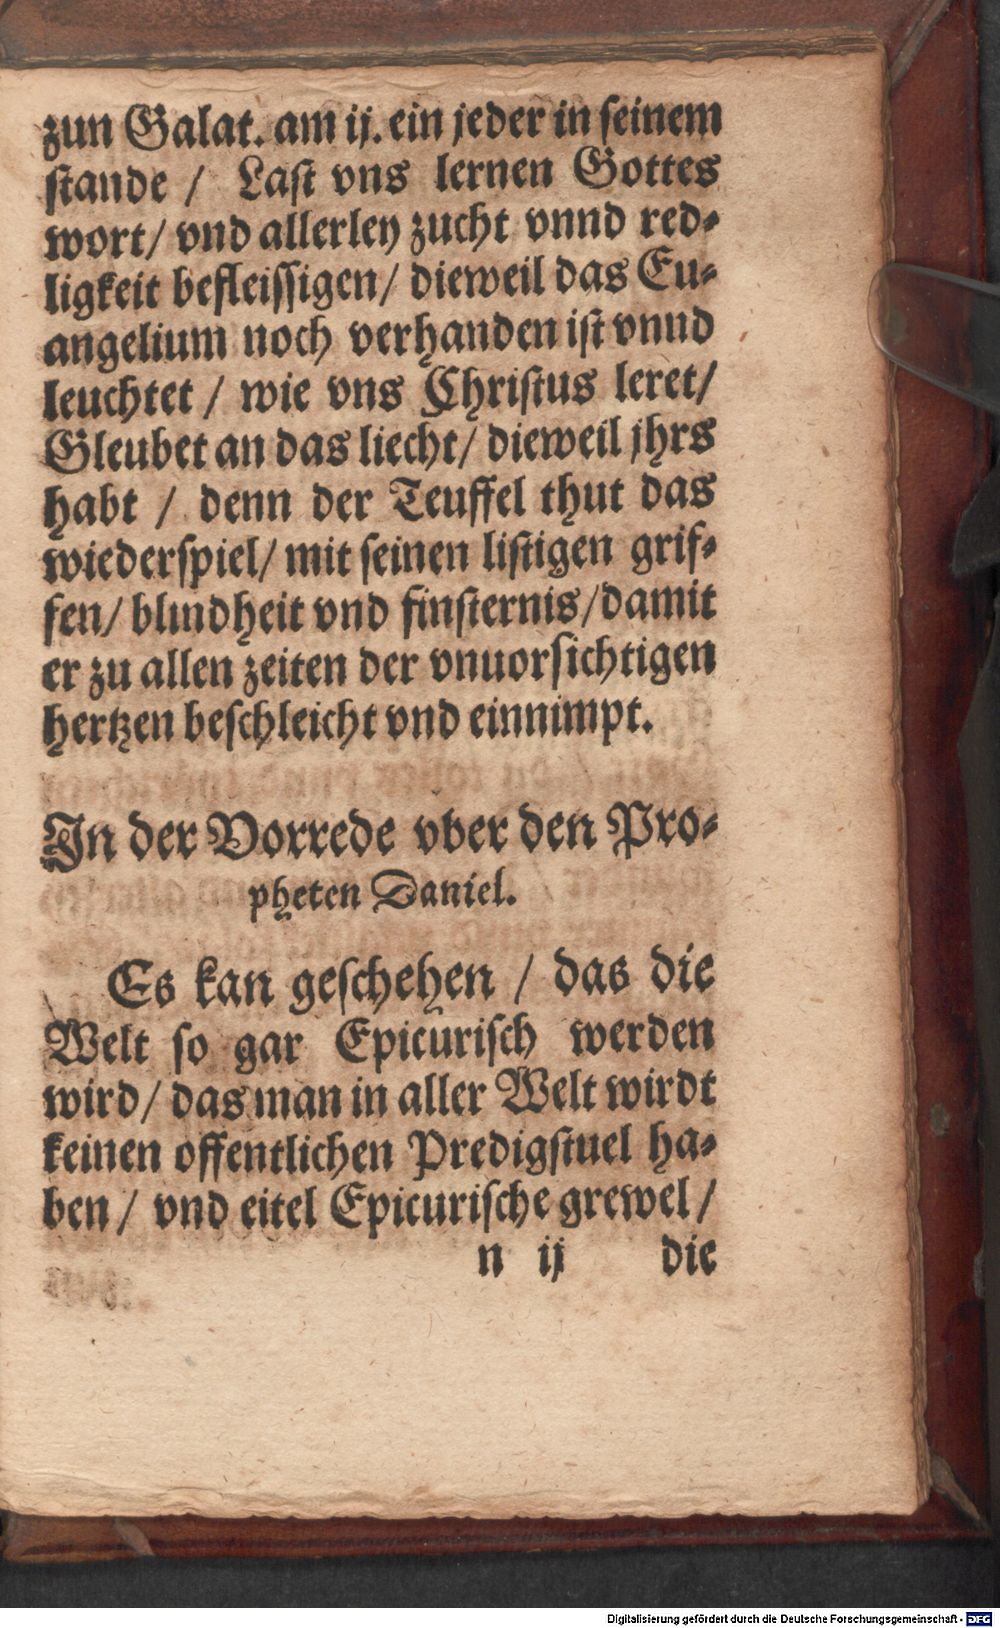 zun Galat. am ij. ein jeder in seinem
stande / Last vns lernen Gottes
wort/ vnd allerley zucht vnnd red-
ligkeit befleissigen/ dieweil das Eu-
angelium noch verhanden ist vnnd
leuchtet / wie vns Christus leret/
Gleubet an das liecht/ dieweil jhrs
habt / denn der Teuffel thut das
wiederspiel/ mit seinen listigen grif-
fen/ blindheit vnd finsternis/damit
er zu allen zeiten der vnuorsichtigen
hertzen beschleicht vnd einnimpt.
In der Vorrede vber den Pro-
pheten Daniel.
Es kan geschehen / das die
Welt so gar Epicurisch werden
wird/ das man in aller Welt wirdt
keinen offentlichen Predigstuel ha-
ben / vnd eitel Epicurische grewel /
n ij die
Digitalisierung gefördert durch die Deutsche Forschungsgemeinschaft - DFG